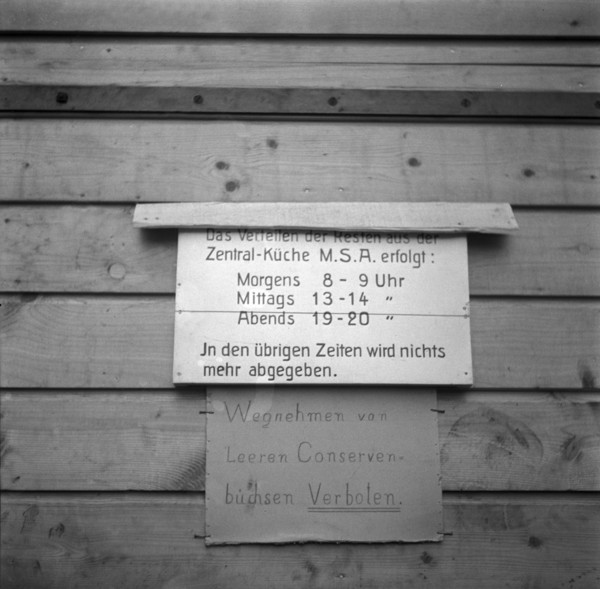 Das Verteilen der Resten aus der
Zentral-Küche M.S.A. erfolgt:
Morgens 8 - 9 Uhr
Mittags 13 - 14 "
Abends 19 - 20 "
Jn den übrigen Zeiten wird nichts
mehr abgegeben.
Wegnehmen von
Leeren Conserven-
büchsen Verboten.